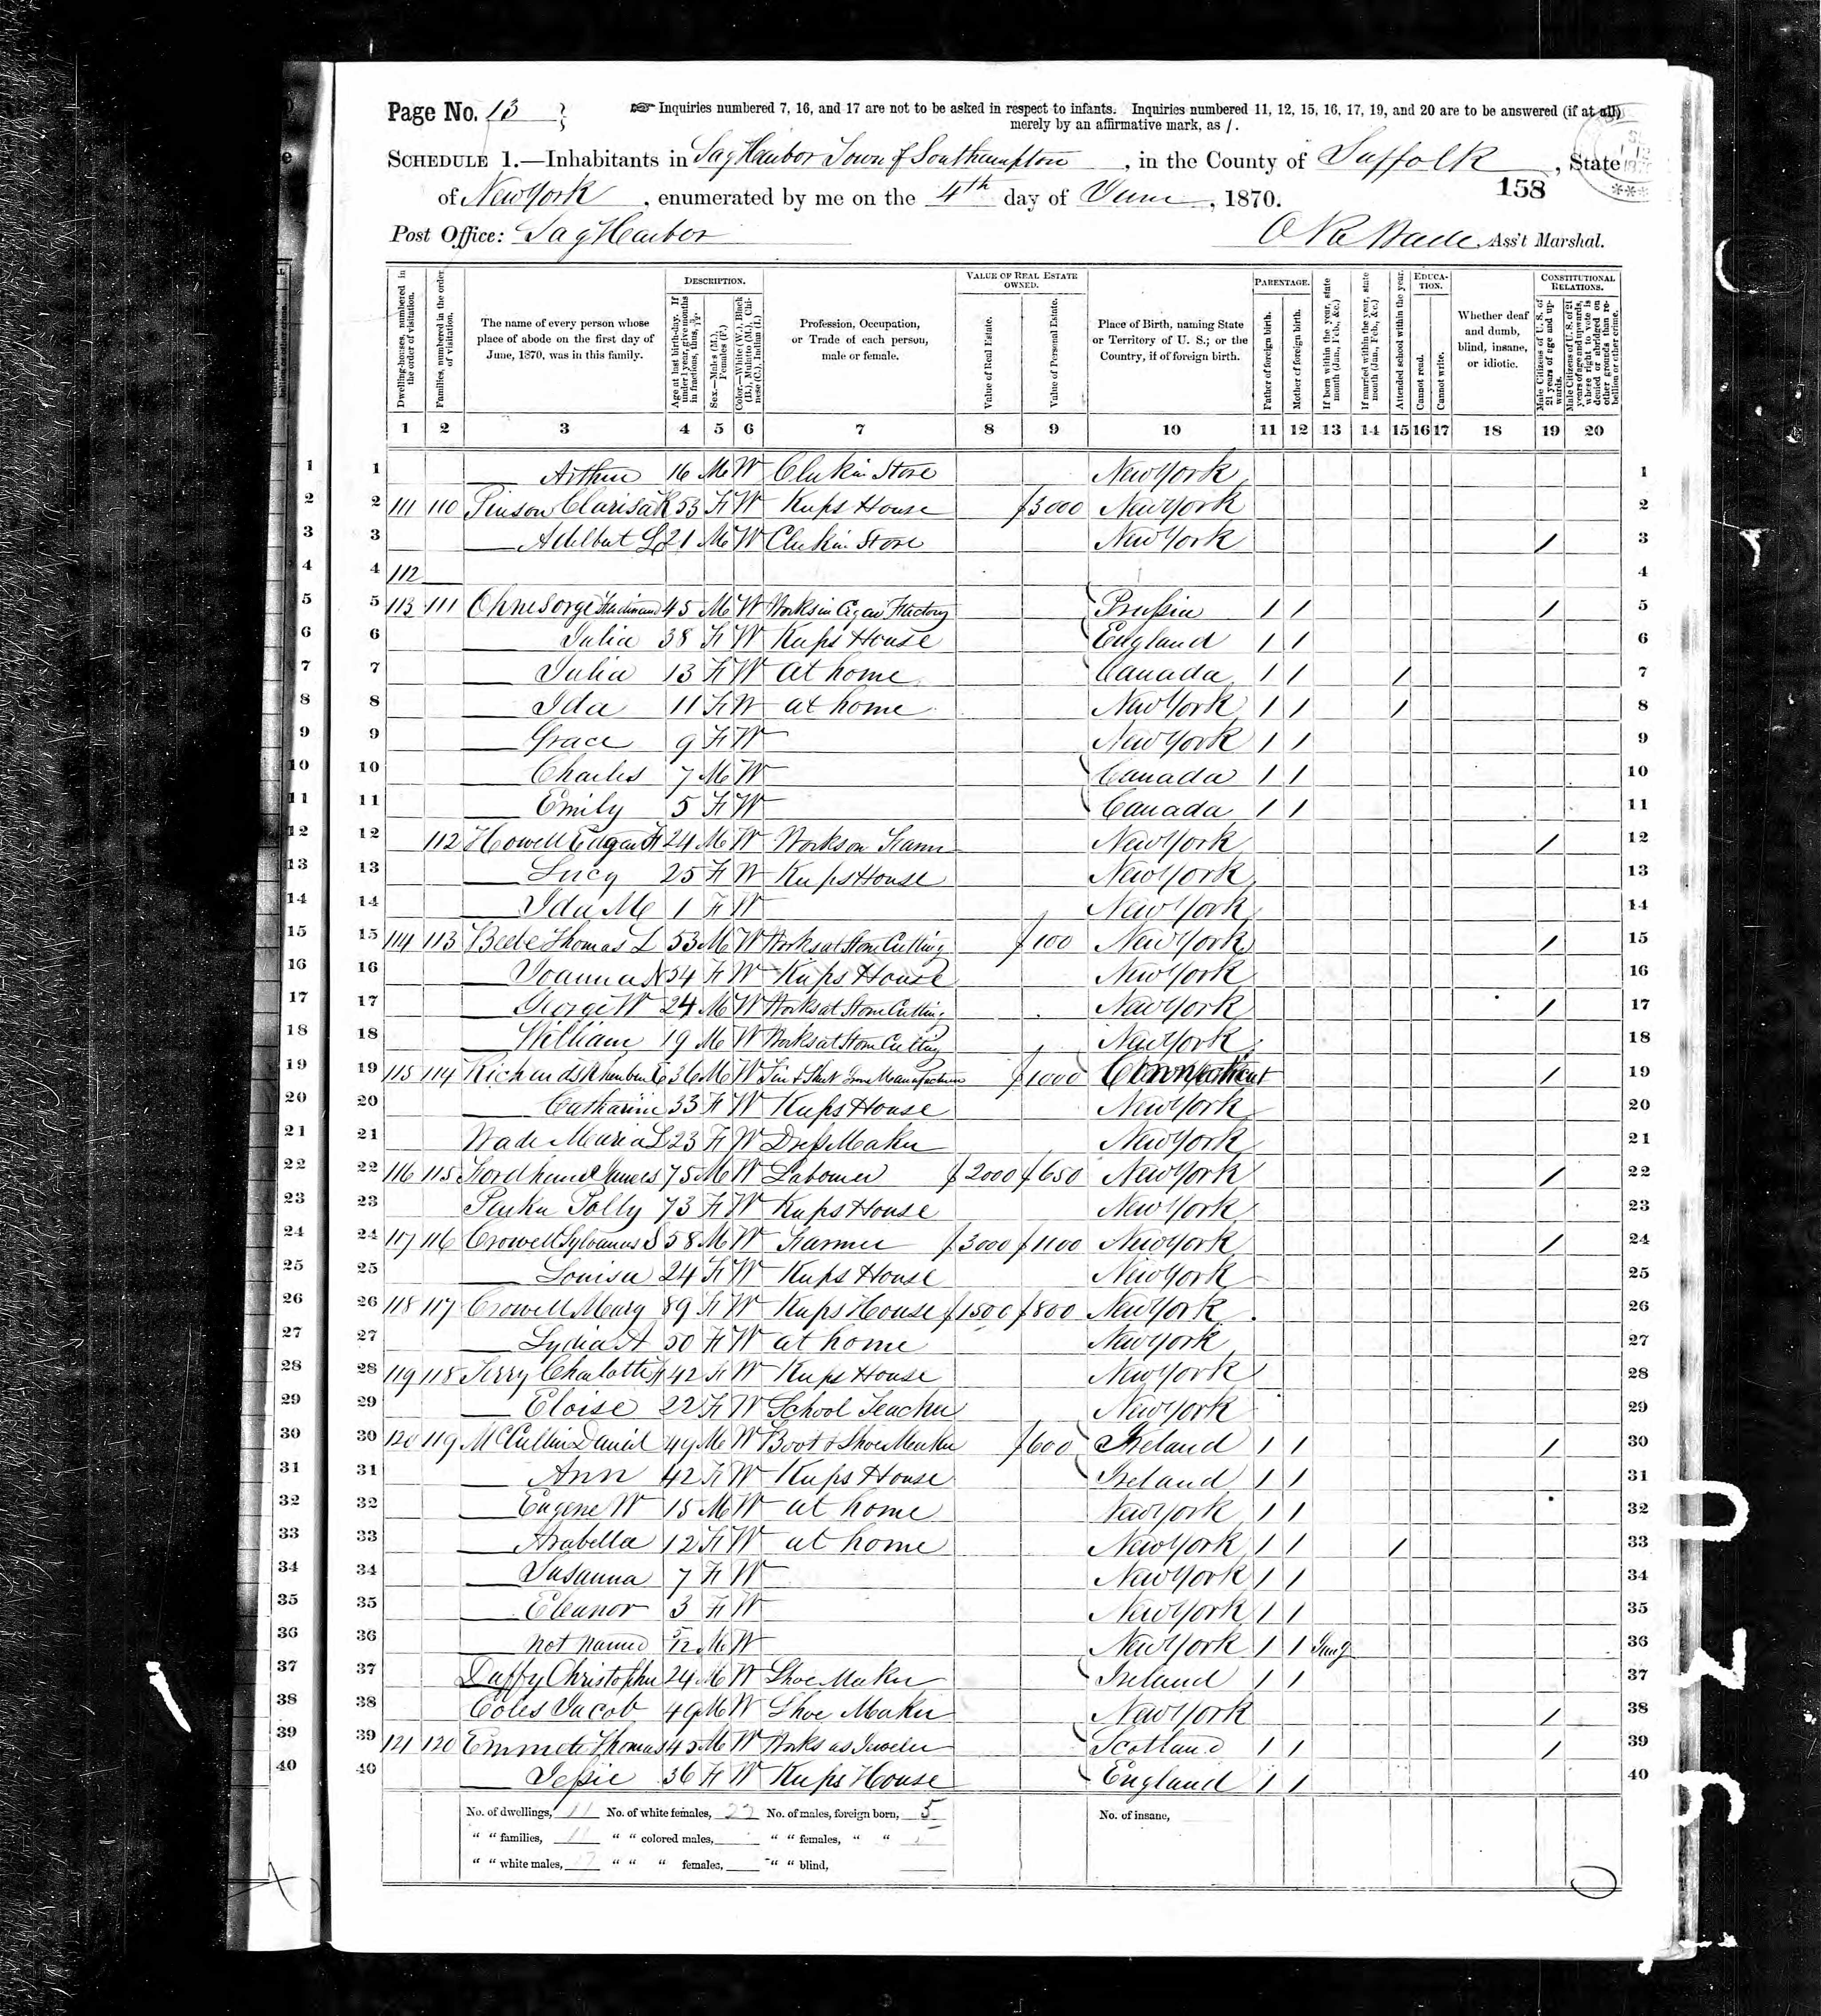 Page No. 13
☞ Inquiries numbered 7, 16, and 17 are not to be asked in respect to infants. Inquiries numbered 11, 12, 15, 16, 17, 19, and 20 are to be answered (if at all)
merely by an affirmative mark, as /.
SCHEDULE 1.—Inhabitants in Sag Harbor Town of Southampton, in the County of Suffolk, State
of New York, enumerated by me on the 4th day of June, 1870.
158
Post Office: Sag Harbor
Ass't Marshal.
Dwelling-houses, numbered in the order of visitation.
Families, numbered in the order of visitation.
The name of every person whose place of abode on the first day of June, 1870, was in this family.
DESCRIPTION.
Age at last birth-day. If under 1 year, give months in fractions, thus, 3/12.
Sex.—Males (M.), Females (F.)
Color.—White (W.), Black (B.), Mulatto (M.), Chinese (C.), Indian (I.)
Profession, Occupation, or Trade of each person, male or female.
VALUE OF REAL ESTATE OWNED.
Value of Real Estate.
Value of Personal Estate.
Place of Birth, naming State or Territory of U. S.; or the Country, if of foreign birth.
PARENTAGE.
Father of foreign birth.
Mother of foreign birth.
If born within the year, state month (Jan., Feb., &c.)
If married within the year, state month (Jan., Feb., &c.)
Attended school within the year.
EDUCATION.
Cannot read.
Cannot write.
Whether deaf and dumb, blind, insane, or idiotic.
CONSTITUTIONAL RELATIONS.
Male Citizens of U. S. of 21 years of age and upwards.
Male Citizens of U. S. of 21 years of age and upwards, whose right to vote is denied or abridged on other grounds than rebellion or other crime.
1 2 3 4 5 6 7 8 9 10 11 12 13 14 15 16 17 18 19 20
1 Arthur 16 M W Clerk in Store New York 1
2 111 110 Pinson Clarisa K 53 F W Keeps House $3000 New York 2
3 Adelbert L 21 M W Clerk in Store New York / 3
4 112 4
5 113 111 Ohnesorge Ferdinand 45 M W Works in Cigar Factory Prussia / / / 5
6 Julia 38 F W Keeps House England / / 6
7 Julia 13 F W at home Canada / / / 7
8 Ida 11 F W at home New York / / / 8
9 Grace 9 F W New York / / 9
10 Charles 7 M W Canada / / 10
11 Emily 5 F W Canada / / 11
12 112 Howell Edgar H 24 M W Works on Farm New York / 12
13 Lucy 25 F W Keeps House New York 13
14 Ida M 1 F W New York 14
15 114 113 Beebe Thomas L 53 M W Works at Stone Cutting $100 New York / 15
16 Joanna N 54 F W Keeps House New York 16
17 George W 24 M W Works at Stone Cutting New York / 17
18 William 19 M W Works at Stone Cutting New York 18
19 115 114 Richards Rheuben C 36 M W Tin & Sheet Iron Manufacturer $1000 Connecticut / 19
20 Catharine 33 F W Keeps House New York 20
21 Wade Maria L 23 F W Dress Maker New York 21
22 116 115 Fordham James 75 M W Labourer $2000 $650 New York / 22
23 Polly 73 F W Keeps House New York 23
24 117 116 Crowell Sylvanus S 58 M W Farmer $3000 $1100 New York / 24
25 Louisa 24 F W Keeps House New York 25
26 118 117 Crowell Mary 89 F W Keeps House $1500 $800 New York 26
27 Lydia A 50 F W at home New York 27
28 119 118 Terry Charlotte H 42 F W Keeps House New York 28
29 Eloise 22 F W School Teacher New York 29
30 120 119 McCullin Daniel 49 M W Boot & Shoe Maker $600 Ireland / / / 30
31 Ann 42 F W Keeps House Ireland / / 31
32 Eugene W 15 M W at home New York / / 32
33 Arabella 12 F W at home New York / / / 33
34 Susanna 7 F W New York / / 34
35 Eleanor 3 F W New York / / 35
36 not named 5/12 M W New York / / Jany 36
37 Duffy Christopher 24 M W Shoe Maker Ireland / / 37
38 Coles Jacob 49 M W Shoe Maker New York / 38
39 121 120 Emmett Thomas 45 M W Works as Jeweler Scotland / / / 39
40 Jessie 36 F W Keeps House England / / 40
No. of dwellings, 11 No. of white females, 22 No. of males, foreign born, 5 No. of insane,
" " families, 11 " " colored males, " " females, " "
" " white males, 17 " " " females, " " blind,